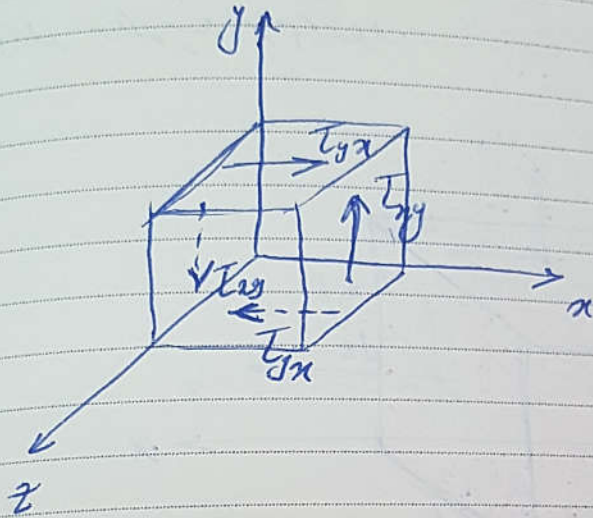 y
τyx
τxy
τxy
x
τyx
z